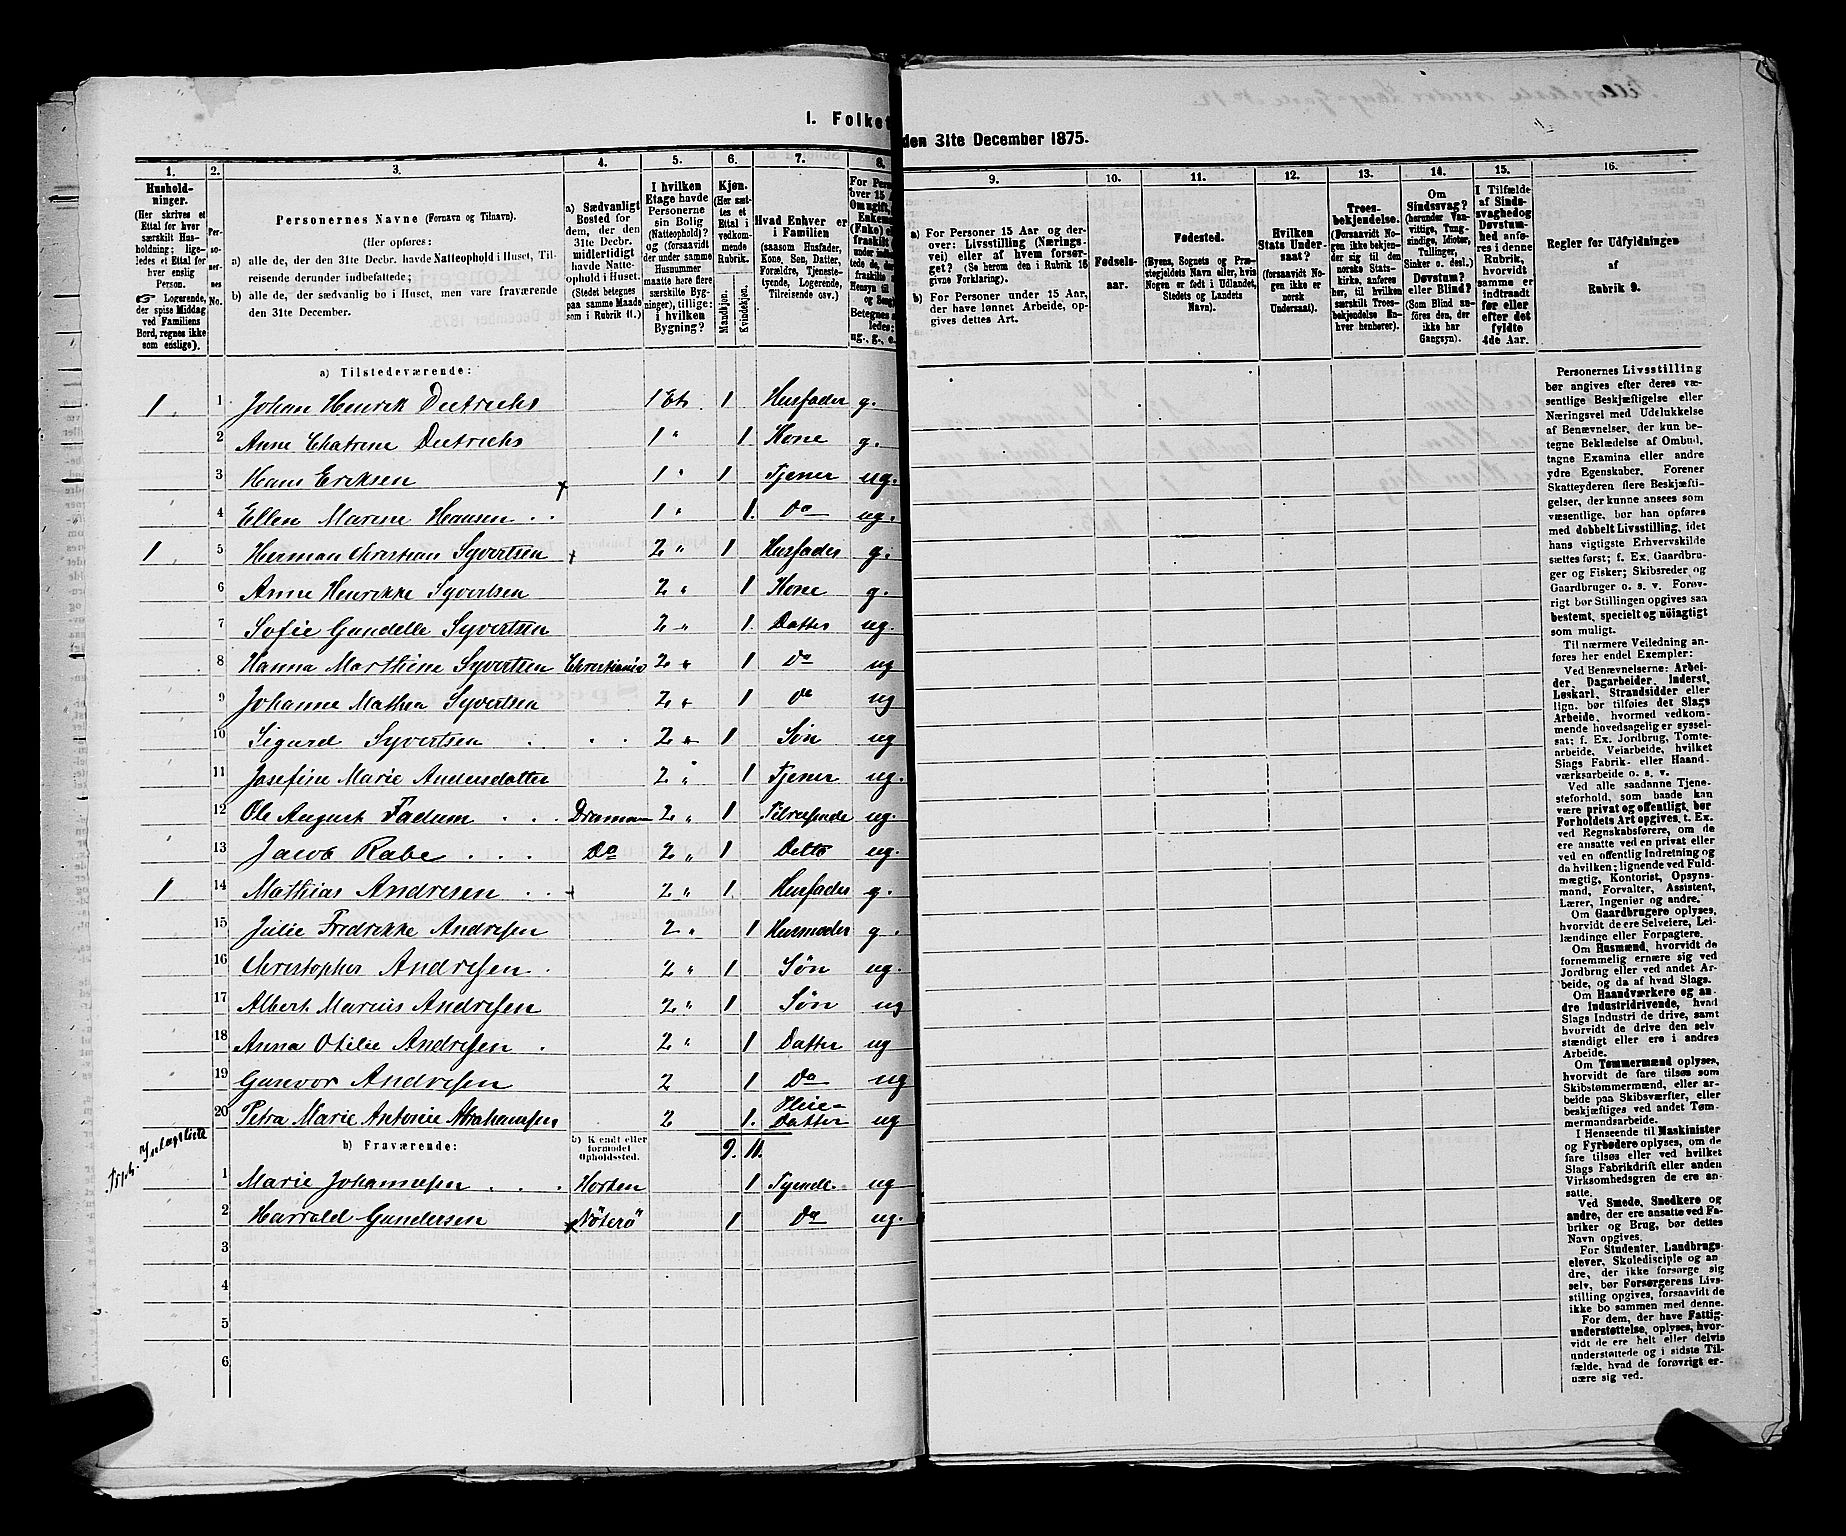 I. Folket
den 31te December 1875.
1.
Hushold-
ninger.
(Her skrives et
Ettal for hver
særskilt Hus-
holdning; lige-
ledes et Ettal for
hver enslig
Person.
Logerende,
der spise Middag
ved Familiens
Bord, regnes ikke
som enslige).
2.
Per-
so-
ner-
nes
No.
3.
Personernes Navne (Fornavn og Tilnavn).
(Her opføres:
a) alle de, der den 31te Decbr. havde Natteophold i Huset, Til-
reisende derunder indbefattede;
b) alle de, der sædvanlig bo i Huset, men vare fraværende
den 31te December.
4.
a) Sædvanligt
Bosted for
dem, der den
31te Decbr.
midlertidigt
havde Natte-
ophold i Huset.
(Stedet betegnes
paa samme Maade
som i Rubrik 11.)
5.
I hvilken
Etage havde
Personerne
sin Bolig
(Natteophold)?
og (forsaavidt
der under samme
Husnummer
maatte høre flere
særskilte Byg-
ninger), tillige:
i hvilken
Bygning?
6.
Kjøn.
(Her sæt-
tes et
Ettal i
vedkom-
mende
Rubrik.
Mandkjøn.
Kvindekjøn.
7.
Hvad Enhver er
i Familien
(saasom Husfader,
Kone, Søn, Datter,
Forældre, Tjeneste-
tyende, Logerende,
Tilreisende osv.)
8.
9.
a) For Personer 15 Aar og der-
over: Livsstilling (Nærings-
vei) eller af hvem forsør-
get? (Se herom den i Rubrik 16
givne Forklaring).
b) For Personer under 15 Aar,
der have lønnet Arbeide, op-
gives dettes Art.
10.
Fødsels-
aar.
11.
Fødested.
(Byens, Sognets og Præ-
stegjeldets Navn eller, hvis
Nogen er født i Udlandet,
Stedets og Landets
Navn).
12.
Hvilken
Stats Under-
saat?
(forsaavidt No-
gen ikke er
norsk
Undersaat).
13.
Troes-
bekjendelse.
(Forsaavidt No-
gen ikke bekjen-
der sig til den
norske Stats-
kirke, anføres
her, til hvilken
særskilt Troes-
bekjendelse En-
hver henhører).
14.
Om
Sindssvag?
(herunder Van-
vittige, Tung-
sindige, Idioter,
Tullinger,
Sinker o. desl.)
Døvstum?
eller Blind?
(Som Blind an-
føres den, der
ikke har
Gangsyn).
15.
I Tilfælde
af Sinds-
svaghed og
Døvstum-
hed anfø-
res i denne
Rubrik,
hvorvidt
samme er
indtraadt
før eller
efter det
fyldte
4de Aar.
16.
Regler for Udfyldningen
af
Rubrik 9.
a) Tilstedeværende:
1 1 Johan Henrik Dietrichs 1 Et. 1 Husfader g.
2 Anne Chatrine Dietrichs 1 " 1 Kone g.
3 Hans Eriksen 1 " 1 Tjener ug.
4 Ellen Marine Hansen 1 " 1 Do ug.
1 5 Herman Christian Syvertsen 2 " 1 Husfader g.
6 Anne Henrikke Syvertsen 2 " 1 Kone g.
7 Sofie Gundelle Syvertsen 2 " 1 Datter ug.
8 Hanna Marthine Syvertsen Christiania 2 " 1 Do ug
9 Johanne Mathea Syvertsen 2 " 1 Do ug
10 Sigurd Syvertsen 2 " 1 Søn ug
11 Josefine Marie Andersdatter 2 " 1 Tjener ug.
12 Ole August Fadum Drammen 2 " 1 Tilreisende ug.
13 Jacob Rabe Do 2 " 1 Ditto ug.
1 14 Mathias Andresen 2 " 1 Husfader g.
15 Julie Fredrikke Andresen 2 " 1 Husmoder g.
16 Christopher Andresen 2 " 1 Søn ug.
17 Albert Marius Andresen 2 " 1 Søn ug
18 Anna Otilie Andresen 2 " 1 Datter ug
19 Gunvor Andresen 2 1 Do ug
20 Petra Marie Antonie Abrahamsen 2 1 Pleie-Datter ug
Illægsliste
b) Fraværende:
b) Kjendt eller
formodet
Opholdssted.
9. 11.
1 Marie Johannesen Horten 1 Tyende ug
2 Harrald Gundersen Nøterø 1 Do ug.
3
4
5
6
Personernes Livsstilling
bør angives efter deres væ-
sentlige Beskjæftigelse eller
Næringsvei med Udelukkelse
af Benævnelser, der kun be-
tegne Beklædelse af Ombud,
tagne Examina eller andre
ydre Egenskaber. Forener
Skatteyderen flere Beskjæfti-
gelser, der kunne ansees som
væsentlige, bør han opføres
med dobbelt Livsstilling, idet
hans vigtigste Erhvervskilde
sættes først; f. Ex. Gaardbru-
ger og Fisker; Skibsreder og
Gaardbruger o. s. v. Forøv-
rigt bør Stillingen opgives saa
bestemt, specielt og nöiagtigt
som muligt.
Til nærmere Veiledning an-
føres her endel Exempler:
Ved Benævnelserne: Arbei-
der, Dagarbeider, Inderst,
Løskarl, Strandsidder eller
lign. bør tilføies det Slags
Arbeide, hvormed vedkom-
mende hovedsagelig er syssel-
sat; f. Ex. Jordbrug, Tomte-
arbeide, Veiarbeide, hvilket
Slags Fabrik- eller Haand-
værksarbeide o. s. v.
Ved alle saadanne Tjene-
steforhold, som baade kan
være privat og offentligt, bør
Forholdets Art opgives, t. Ex.
ved Regnskabsførere, om de
ere ansatte ved en privat eller
ved en offentlig Indretning og
da hvilken; lignende ved Fuld-
mægtig, Kontorist, Opsyns-
mand, Forvalter, Assistent,
Lærer, Ingeniør og andre.
Om Gaardbrugere oplyses,
hvorvidt de ere Selveiere, Lei-
lændinge eller Forpagtere.
Om Husmænd, hvorvidt de
fornemmelig ernære sig ved
Jordbrug eller ved andet Ar-
beide, og da af hvad Slags.
Om Haandværkere og an-
dre Industridrivende, hvad
Slags Industri de drive, samt
hvorvidt de drive den selv-
stændigt eller ere i andres
Arbeide.
Om Tømmermænd oplyses,
hvorvidt de fare tilsøs som
Skibstømmermænd, eller ar-
beide paa Skibsværfter, eller
beskjæftiges ved andet Tøm-
mermandsarbeide.
I Henseende til Maskinister
og Fyrbødere oplyses, om de
fare tilsøs eller ved hvilket
Slags Fabrikdrift eller anden
Virksomhedsgren de ere an-
satte.
Ved Smede, Snedkere og
andre, der ere ansatte ved Fa-
briker og Brug, bør dettes
Navn opgives.
For Studenter, Landbrugs-
elever, Skoledisciple og an-
dre, der ikke forsørge sig
selv, bør Forsørgerens Livs-
stilling opgives, forsaavidt de
ikke bo sammen med denne.
For dem, der have Fattig-
understøttelse, oplyses, hvor-
vidt de ere helt eller delvis
understøttede og i sidste Til-
fælde, hvad de forøvrigt er-
nære sig ved.